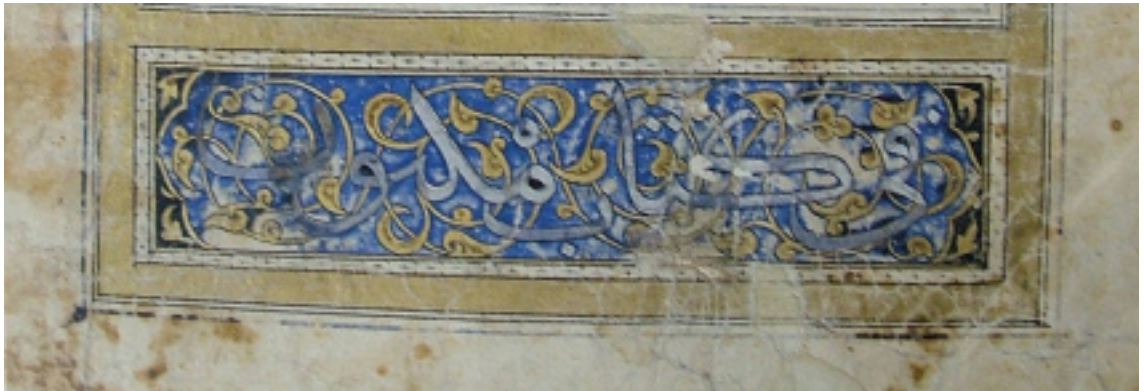 في كتاب مكنون